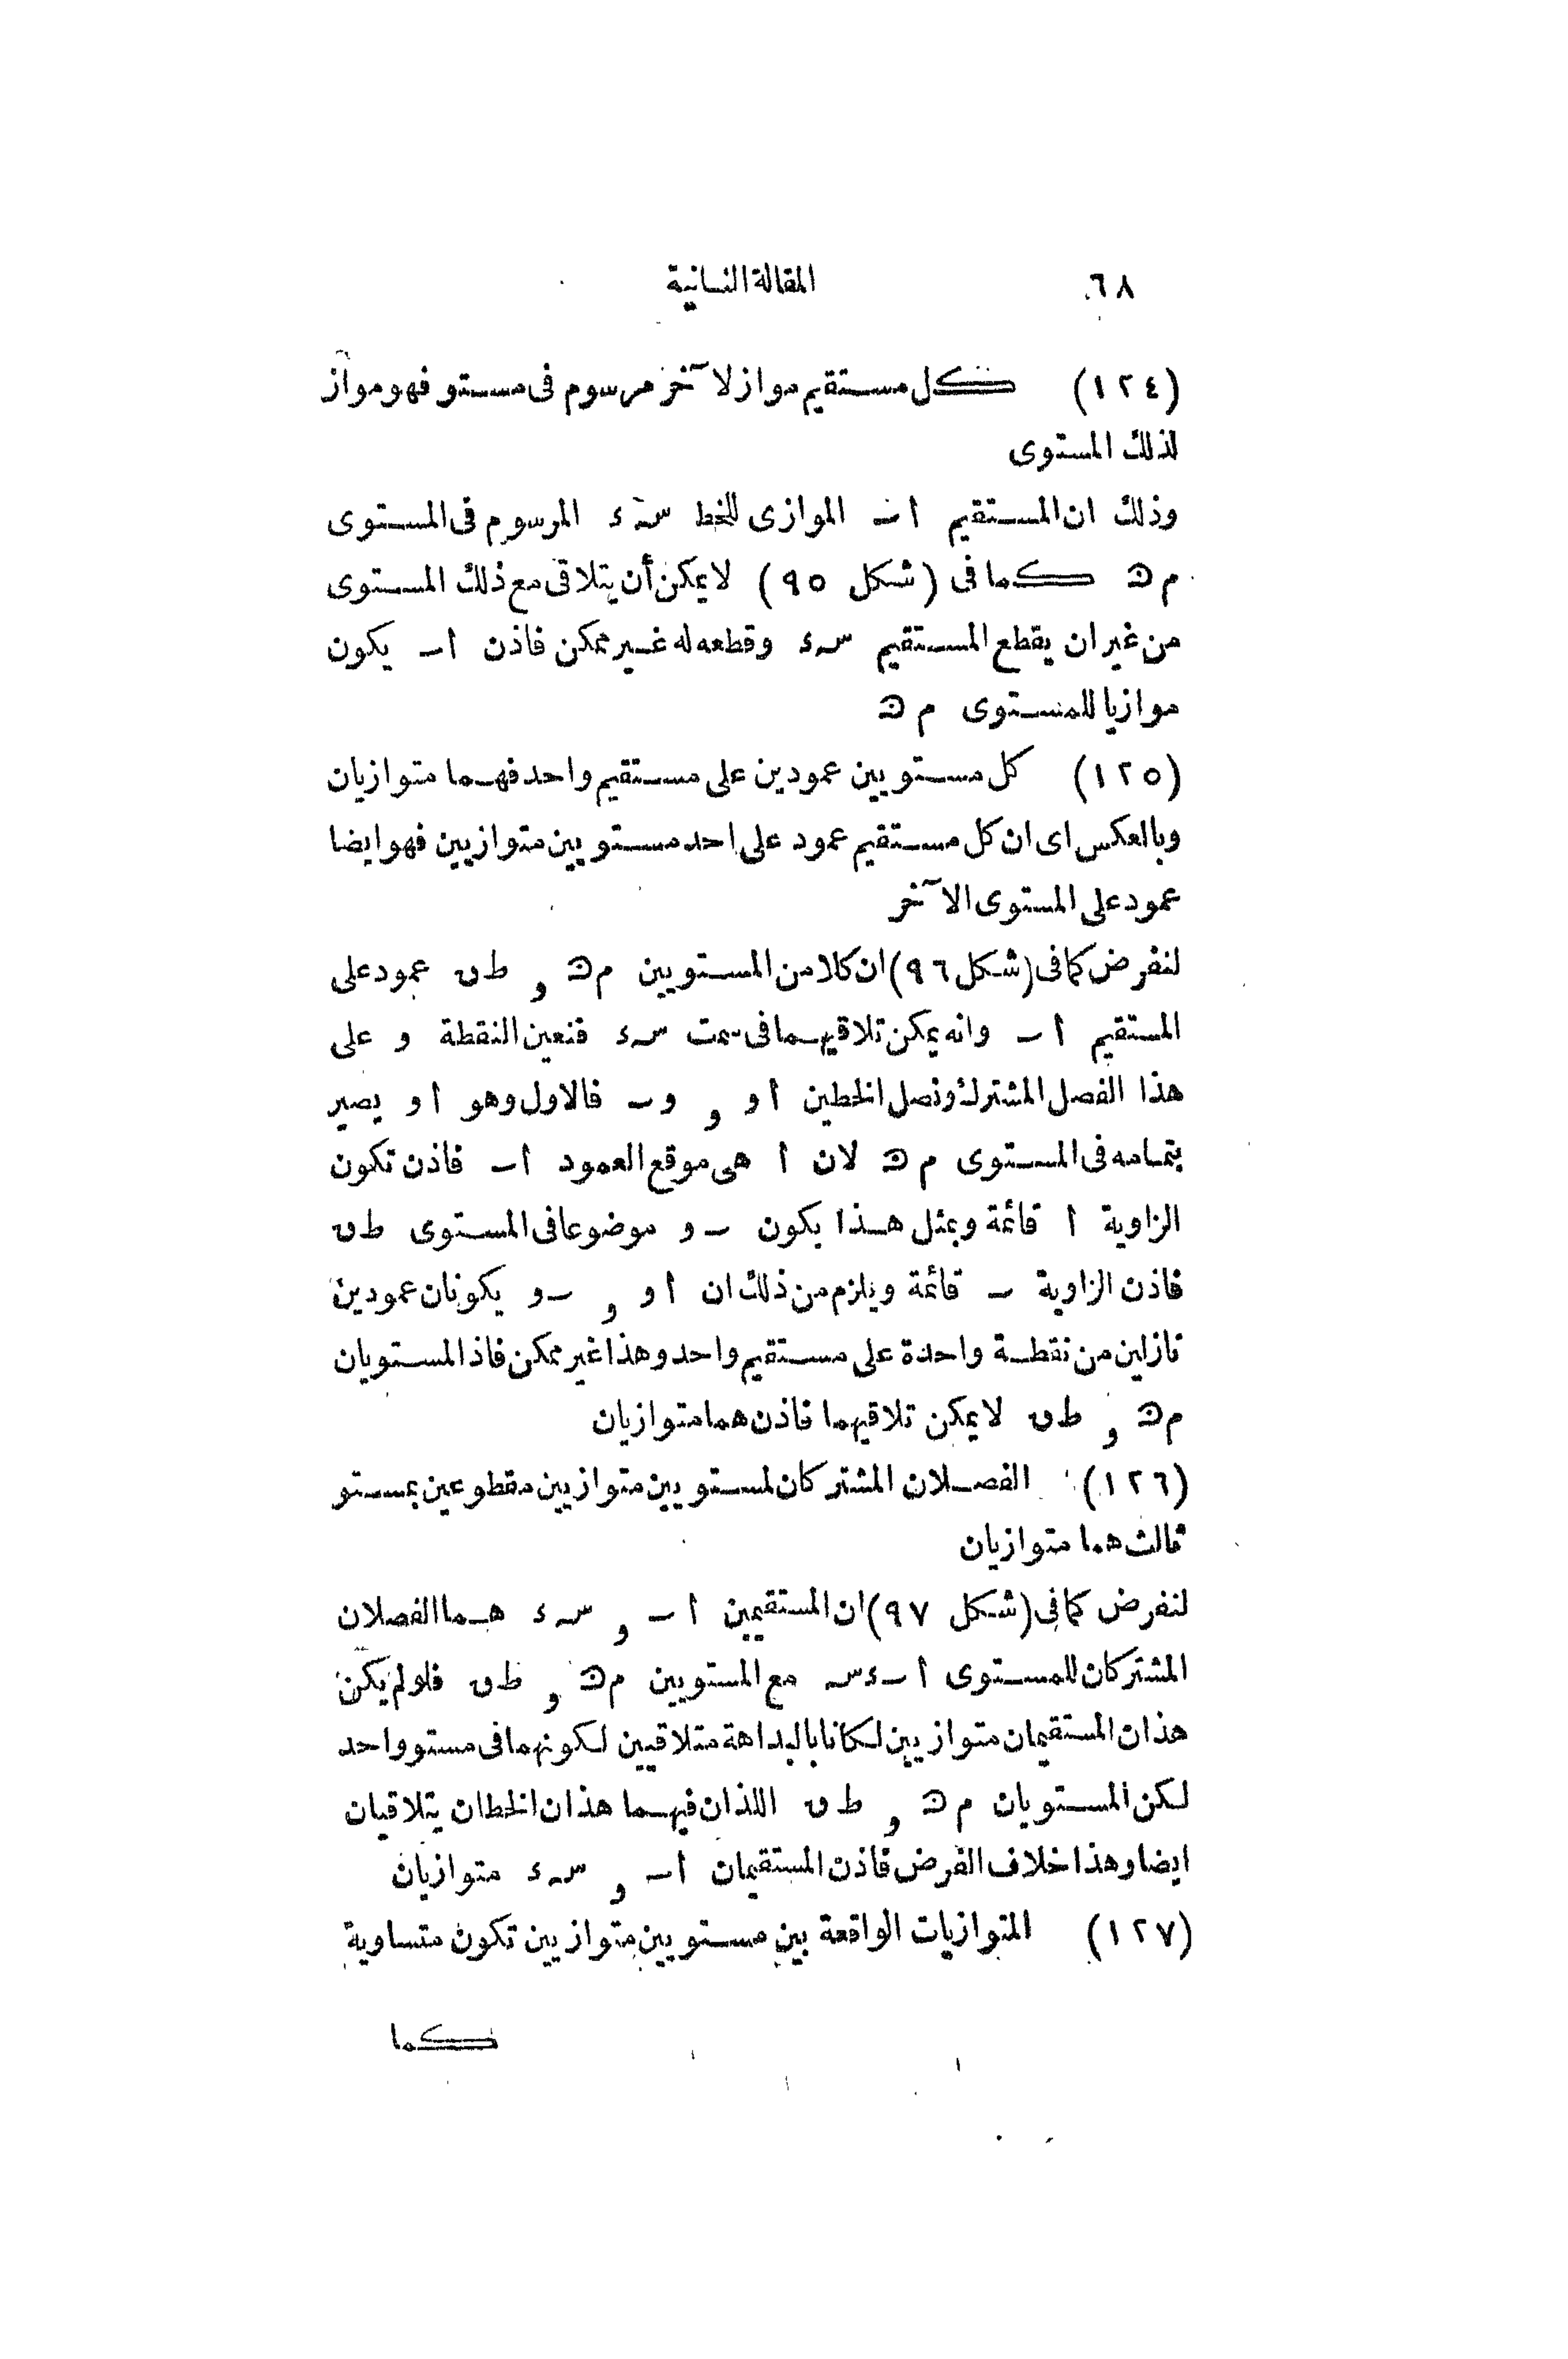 ٦٨ المقالة الثانية
(١٢٤) كل مستقيم مواز لآخر مرسوم فى مستو فهو مواز
لذلك المستوى
وذلك ان المستقيم ا ـ الموازى للخط سـ ء المرسوم فى المستوى
م ﻫ كما فى (شكل ٩٥) لا يمكن أن يتلاقى مع ذلك المستوى
من غير ان يقطع المستقيم سـ ء وقطعه له غير ممكن فاذن ا ـ يكون
موازيا للمستوى م ﻫ
(١٢٥) كل مستويين عمودين على مستقيم واحد فهما متوازيان
وبالعكس اى ان كل مستقيم عمود على احد مستويين متوازيين فهو ايضا
عمود على المستوى الآخر
لنفرض كما فى (شكل ٩٦) ان كلا من المستويين م ﻫ و ط ں عمود على
المستقيم ا ـ وانه يمكن تلاقيهما فى سمت سـ ء فنعين النقطة و على
هذا الفصل المشترك ونصل الخطين ا و و و ـ فالاول وهو ا و يصير
بتمامه فى المستوى م ﻫ لان ا هى موقع العمود ا ـ فاذن تكون
الزاوية ا قائمة وبمثل هذا يكون ـ و موضوعا فى المستوى ط ں
فاذن الزاوية ـ قائمة ويلزم من ذلك ان ا و و ـ و يكونان عمودين
نازلين من نقطة واحدة على مستقيم واحد وهذا غير ممكن فاذ المستويان
م ﻫ و ط ں لا يمكن تلاقيهما فاذن هما متوازيان
(١٢٦) الفصلان المشتركان لمستويين متوازيين مقطوعين بمستو
ثالث هما متوازيان
لنفرض كما فى (شكل ٩٧) ان المستقيمين ا ـ و سـ ء هما الفصلان
المشتركان للمستوى ا ـ ء سـ مع المستويين م ﻫ و ط ں فلو لم يكن
هذان المستقيمان متوازيين لكانا بالبداهة متلاقيين لكونهما فى مستو واحد
لكن المستويان م ﻫ و ط ں اللذان فيهما هذان الخطان يتلاقيان
ايضا وهذا خلاف الفرض فاذن المستقيمان ا ـ و سـ ء متوازيان
(١٢٧) المتوازيات الواقعة بين مستويين متوازيين تكون متساوية
كما